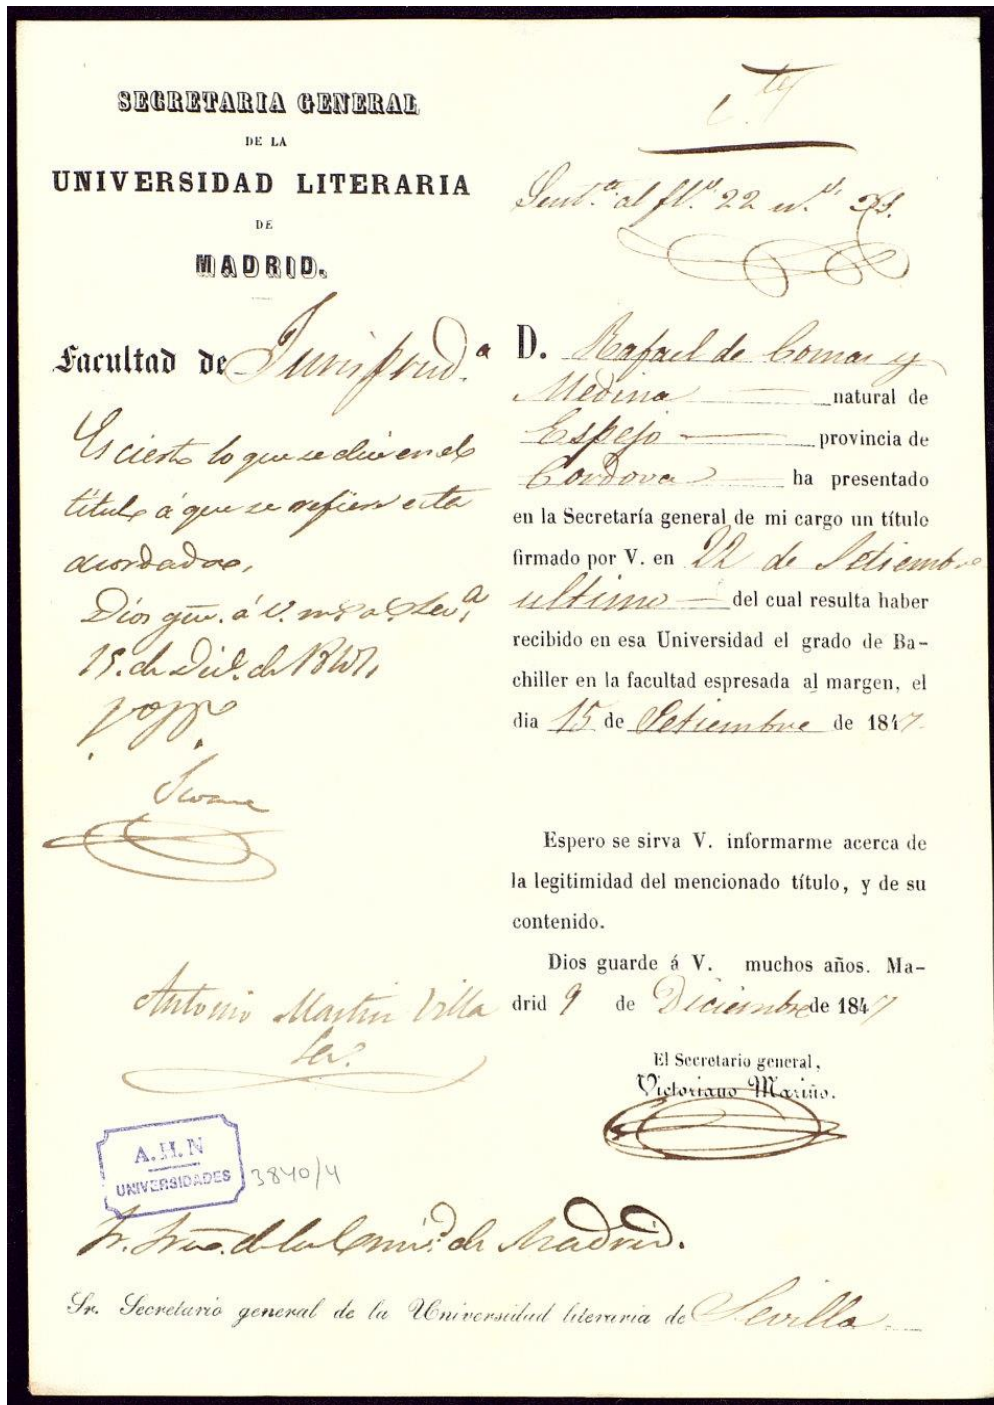 SECRETARIA GENERAL
DE LA
UNIVERSIDAD LITERARIA
DE
MADRID.
Sent.ª al fl.º 22 n.º
Facultad de Jurisprud.ª
Es cierto lo que se dice en el
titulo á que se refiere esta
acordada.
Dios gue. á V. m.s a.s Sev.ª
15 de Dic.e de 1847.
Antonio Martin Villa
D. Rafael de Comas y
Medina natural de
Espejo provincia de
Cordova ha presentado
en la Secretaría general de mi cargo un título
firmado por V. en 22 de Setiembre
ultimo del cual resulta haber
recibido en esa Universidad el grado de Ba-
chiller en la facultad espresada al margen, el
dia 15 de Setiembre de 1847
Espero se sirva V. informarme acerca de
la legitimidad del mencionado título, y de su
contenido.
Dios guarde á V. muchos años. Ma-
drid 9 de Diciembre de 1847
El Secretario general,
Victoriano Mariño.
A.H.N
UNIVERSIDADES
3840/4
Sr. Srio. de la Univ.d de Madrid.
Sr. Secretario general de la Universidad literaria de Sevilla